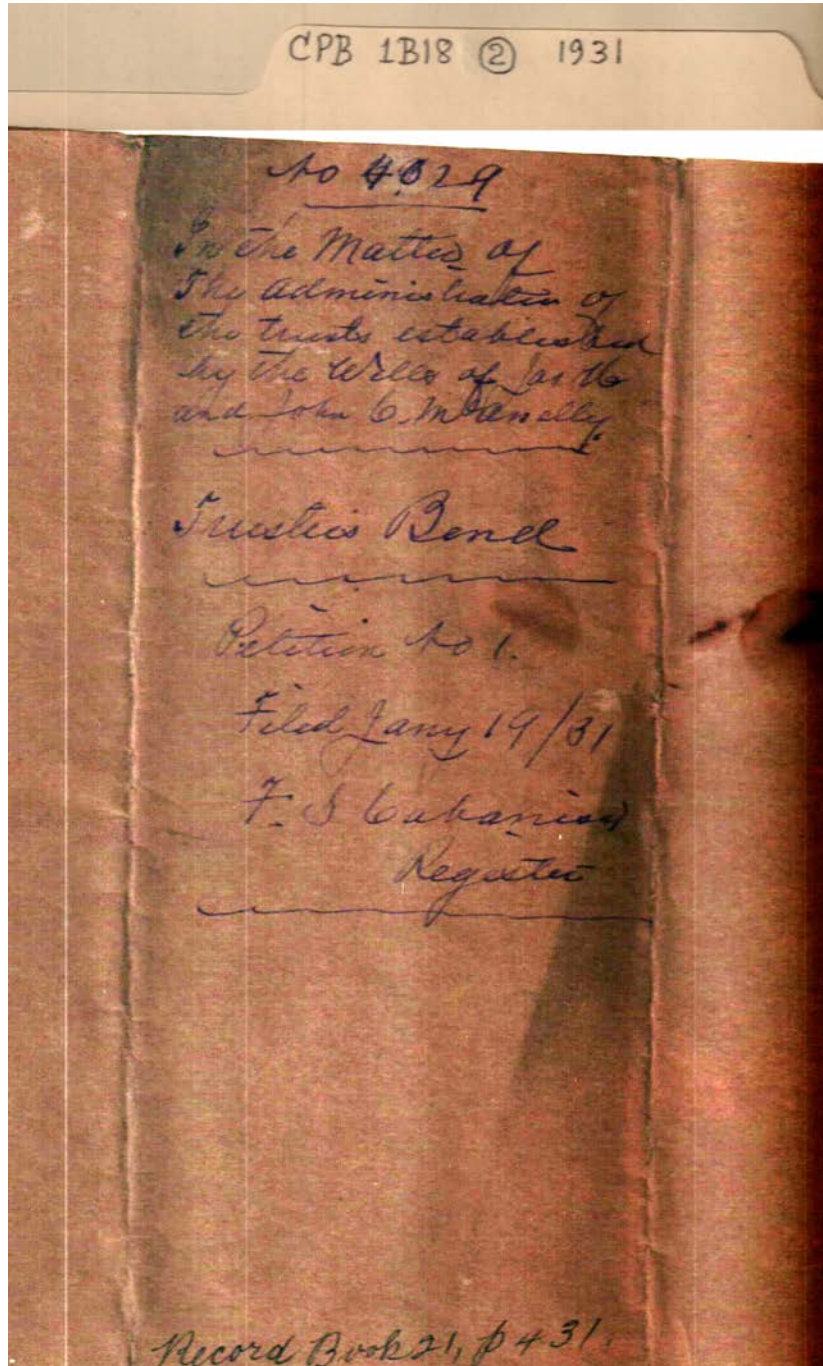 CPB 1B18 ② 1931
No 4629
In the Matter of
The administration of
the trusts established
by the Wills of Jas H
and John C. McAnelly.
Trustees Bond
Petition No 1.
Filed Jany 19/31
F. S Cabaniss
Register
Record Book 21, p 431.